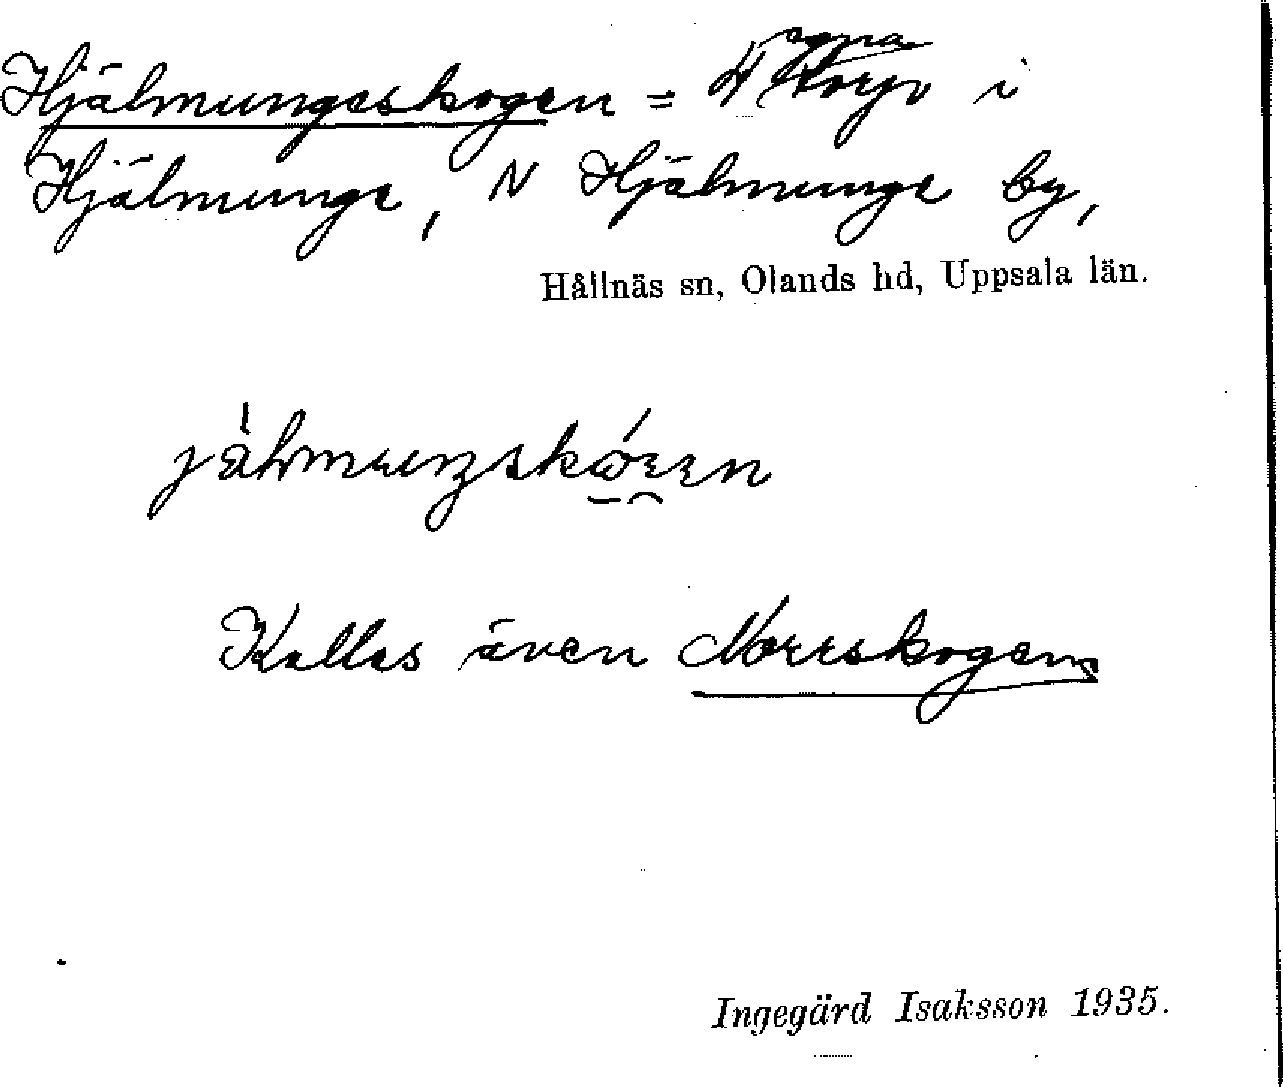 Hjälmungeskogen = 4 torp i
Hjälmunge, N Hjälmunge by,
Hållnäs sn, Olands hd, Uppsala län.
Kallas även Norrskogen
Ingegärd Isaksson 1935.